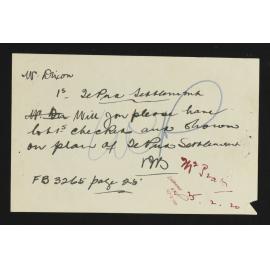 Mr Dixon
1s Te Pua Settlement
Will you please have
lots checked and shown
on plan of Te Pua Settlement
FB 3265 page 25
25. 2. 20